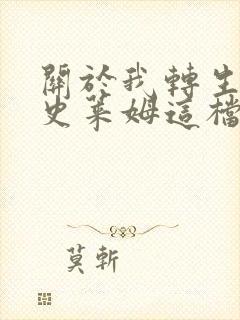 關於我轉生
史萊姆這檔
莫斬